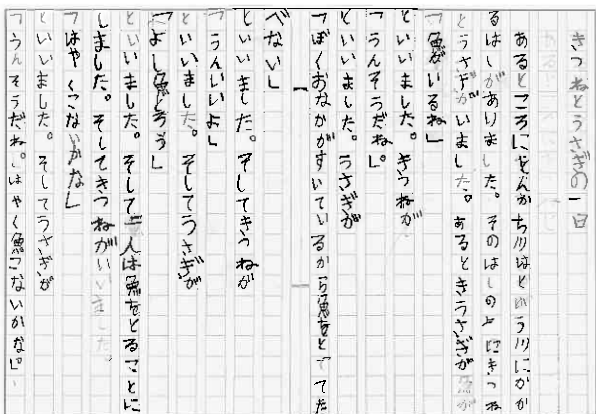 きつねとうさぎの一日
あるところにとんかち川はという川にかか
るはしがありました。そのはしの上にきつね
とうさぎがいました。あるときうさぎが魚が
「魚がいるね」
といいました。きつねが
「うんそうだね。」
といいました。うさぎが
「ぼくおなかがすいているから魚をとってた
べない」
といいました。そしてきつねが
「うんいいよ」
といいました。そしてうさぎが
「よし魚とろう」
といいました。そして二人は魚をとることに
しました。そしてきつねがいいました。
「はやくこないかな」
といいました。そしてうさぎが
「うんそうだね。はやく魚こないかな。」